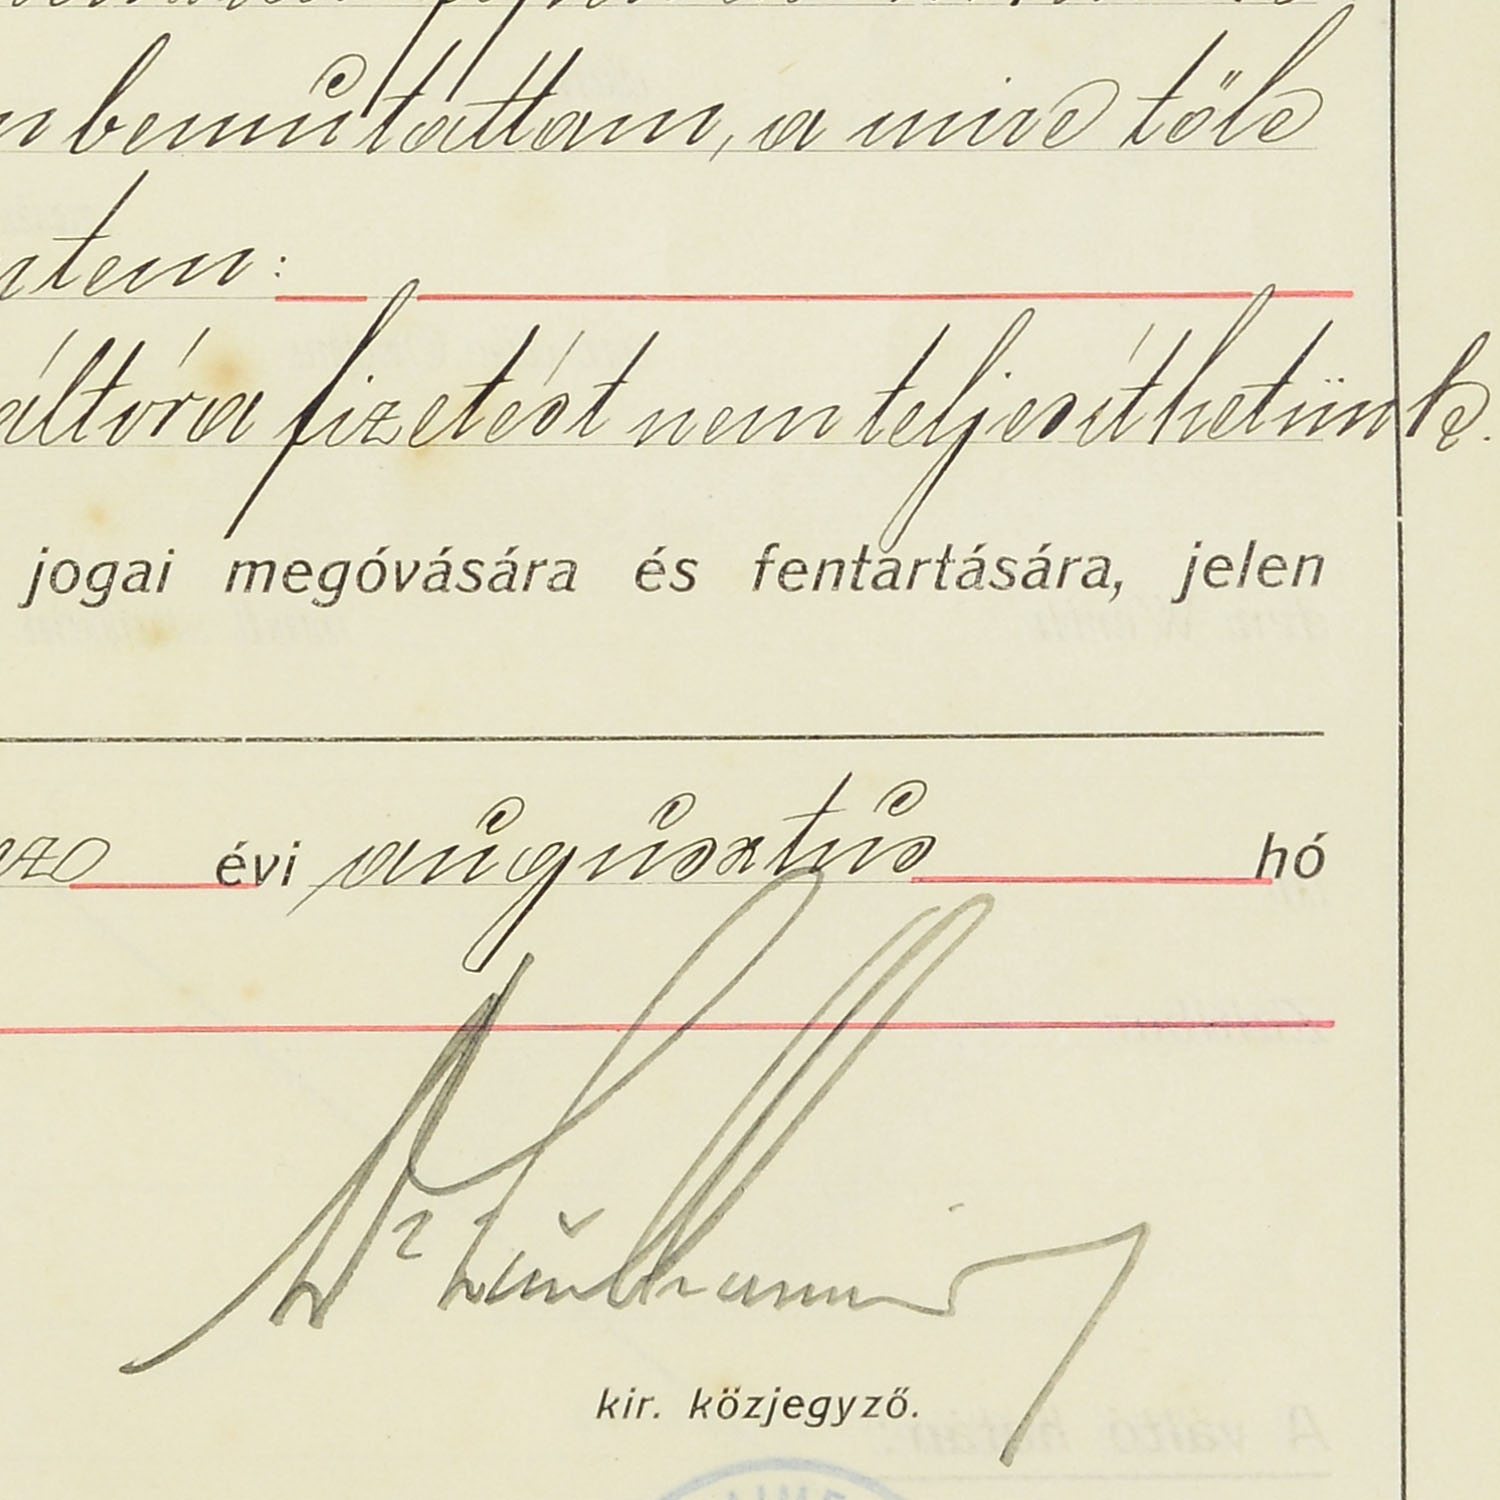 bemutattam, a mire tőle
ntem:
áltóra fizetést nem teljesíthetünk.
jogai megóvására és fentartására, jelen
évi augusztus hó
kir. közjegyző.